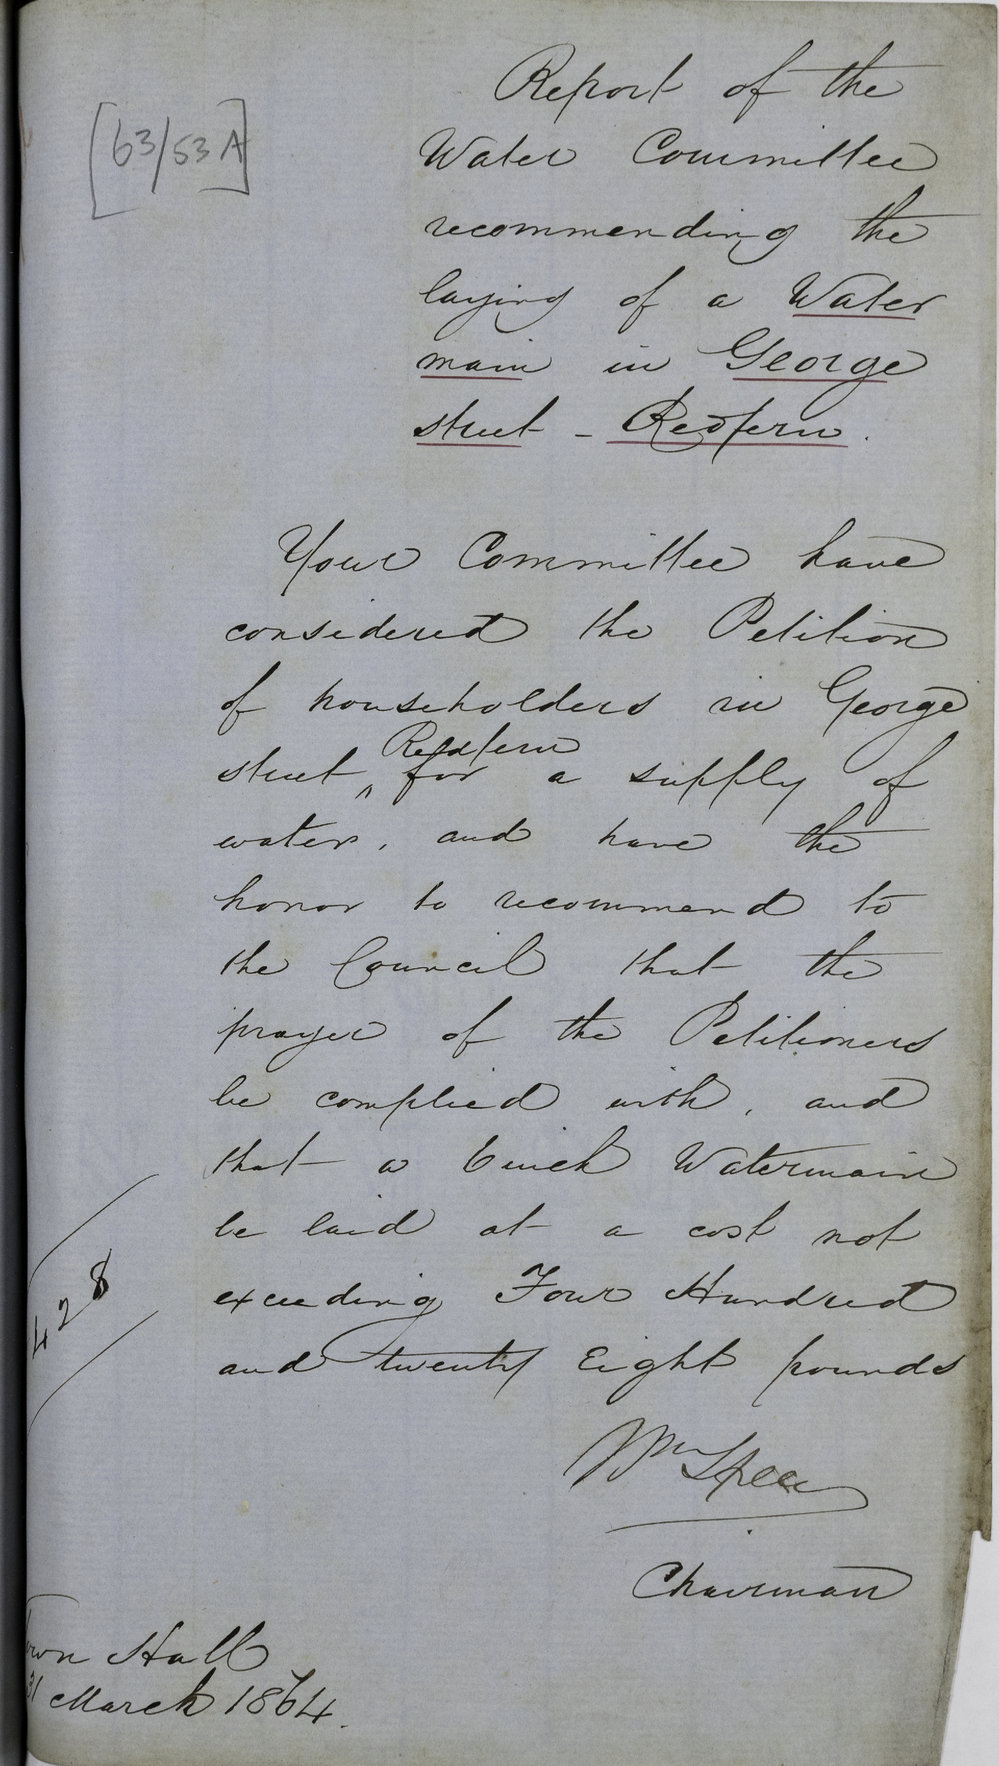 [63/53 A]
Report of the
Water Committee
recommending the
laying of a Water
main in George
street - Redfern.
Your Committee have
considered the Petition
of householders in George
Redfern
street ^ for a supply of
water, and have the
honor to recommend to
the Council that the
prayer of the Petitioners
be complied with, and
that a 6 inch Watermain
be laid at a cost not
428
exceeding Four Hundred
and twenty Eight pounds
Wm Speer
Chairman
Town Hall
31 March 1864.